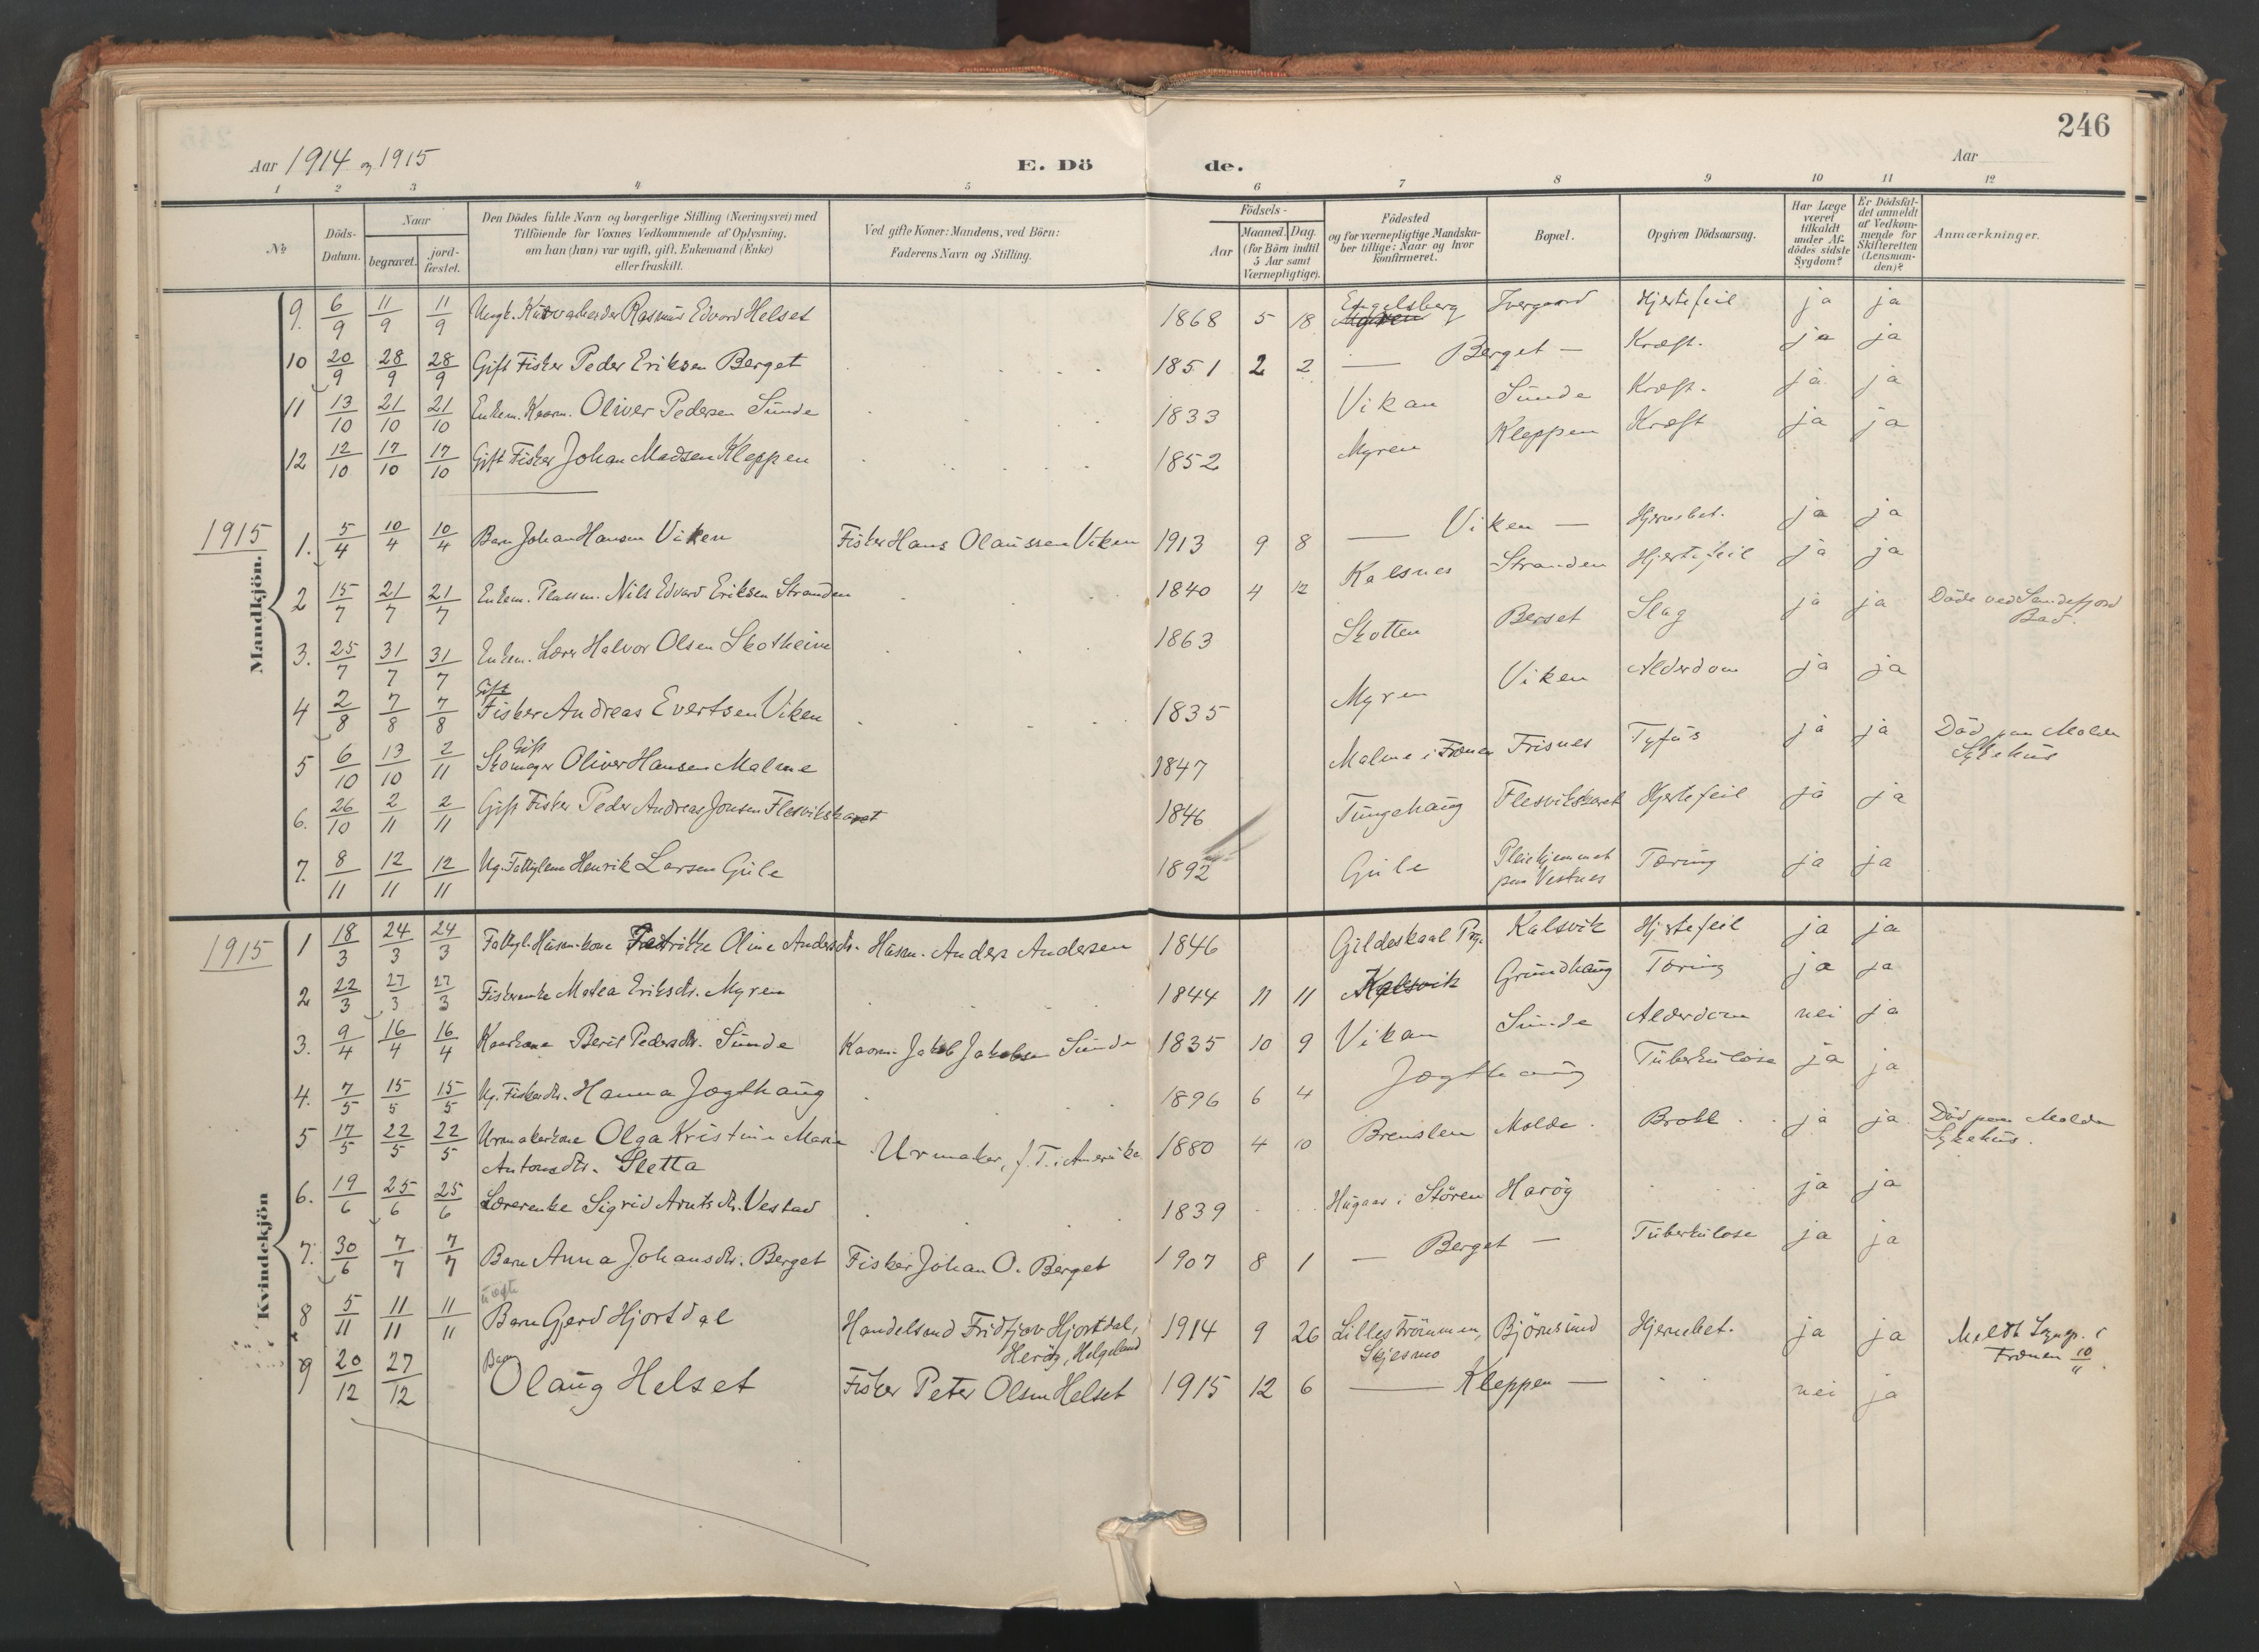 246
Aar 1914 og 1915 E. Dö de. Aar
1 2 3 4 5 6 7 8 9 10 11 12
No. Döds-Datum. Naar begravet. jord-fæstet. Den Dödes fulde Navn og borgerlige Stilling (Næringsvei) med Tilföiende for Voxnes Vedkommende af Oplysning, om han (hun) var ugift, gift, Enkemand (Enke) eller fraskilt. Ved gifte Koner: Mandens, ved Börn: Faderens Navn og Stilling. Födsels- Aar Maaned. Dag. (for Börn indtil 5 Aar samt Værnepligtige). Födested og for værnepligtige Mandskaber tillige: Naar og hvor konfirmeret. Bopæl. Opgiven Dödsaarsag. Har Læge været tilkaldt under Afdödes sidste Sygdom? Er Dödsfaldet anmeldt af Vedkommende for Skifteretten (Lensmanden)? Anmærkninger.
Mandkjön.
9. 6/9 11/9 11/9 Ungk. Kurvarbeider Rasmus Edvard Helset 1868 5 18 Engelsberg Ivergaard Hjertefeil ja ja
10 20/9 28/9 28/9 Gift Fisker Peder Eriksen Berget 1851 2 2 — Berget — Kræft. ja ja
11 13/10 21/10 21/10 Enkem. Kaarm. Oliver Pedersen Sunde 1833 Vikan Sunde Kræft. ja ja
12 12/10 17/10 17/10 Gift Fisker Johan Madsen Kleppen 1852 Myren Kleppen Kræft ja ja
1915
1. 5/4 10/4 10/4 Barn Johan Hansen Viken Fisker Hans Olaussen Viken 1913 9 8 — Viken — Hjernebet. ja ja
2 15/7 21/7 21/7 Enkem. Plassm. Nils Edvard Eriksen Stranden 1840 4 12 Kalsnes Stranden Hjertefeil ja ja
3. 25/7 31/7 31/7 Enkem. Lærer Halvor Olsen Skotheim 1863 Skotten Berset Slag ja ja Döde ved Sandefjord Bad.
4 2/8 7/8 7/8 Gift Fisker Andreas Evertsen Viken 1835 Myren Viken Alderdom ja ja
5 6/10 13/10 2/11 Gift Skomager Oliver Hansen Malme 1847 Malme i Frænen Frisnes Tyfus ja ja Död paa Molde Sykehus
6. 26/10 2/11 2/11 Gift Fisker Peder Andreas Jonsen Flesvikskaret 1846 Tungehaug Flesvikskaret Hjertefeil ja ja
7. 8/11 12/11 12/11 Ug. Fattiglem Henrik Larsen Gule 1892 Gule Pleiehjemmet paa Vestnes Tæring ja ja
Kvindekjön
1915
1 18/3 24/3 24/3 Fattigl. Husm.kone Fredrikke Oline Andersdtr. Husm. Anders Andersen 1846 Gildeskaal Prg. Kalsvik Hjertefeil ja ja
2 22/3 27/3 27/3 Fiskerenke Matea Eriksdtr. Myren 1844 11 11 Kalsvik Grundhaug Tæring ja ja
3. 9/4 16/4 16/4 Kaarkone Berit Pedersdtr. Sunde Kaarm. Jakob Jakobsen Sunde 1835 10 9 Vikan Sunde Alderdom nei ja
4. 7/5 15/5 15/5 Ug. Fiskerdtr. Hanna Jægthaug 1896 6 4 Jægthaug Tuberkulose ja ja
5 17/5 22/5 22/5 Urmakerkone Olga Kristine Marie Antonsdtr. Sletta Urmaker, f. T. i Amerika 1880 4 10 Brenslen Molde. Brokk. ja ja Död paa Molde Sykehus.
6. 19/6 25/6 25/6 Lærerenke Sigrid Arntsdtr. Vestad 1839 Hugaas i Stören Haröy ja ja
7. 30/6 7/7 7/7 Barn Anna Johansdtr. Berget Fisker Johan O. Berget 1907 8 1 — Berget — Tuberkulose ja ja
8 5/11 11/11 11/11 uægte Barn Gjerd Hjortdal Handelsmd Fridtjov Hjortdal, Heröy, Helgeland 1914 9 26 Lilleströmmen, Skjesmo Björnsund Hjernebet. ja ja Meldt i Frænen 10/11.
9 20/12 27/12 Barn Olaug Helset Fisker Peter Olsen Helset 1915 12 6 — Kleppen — nei ja